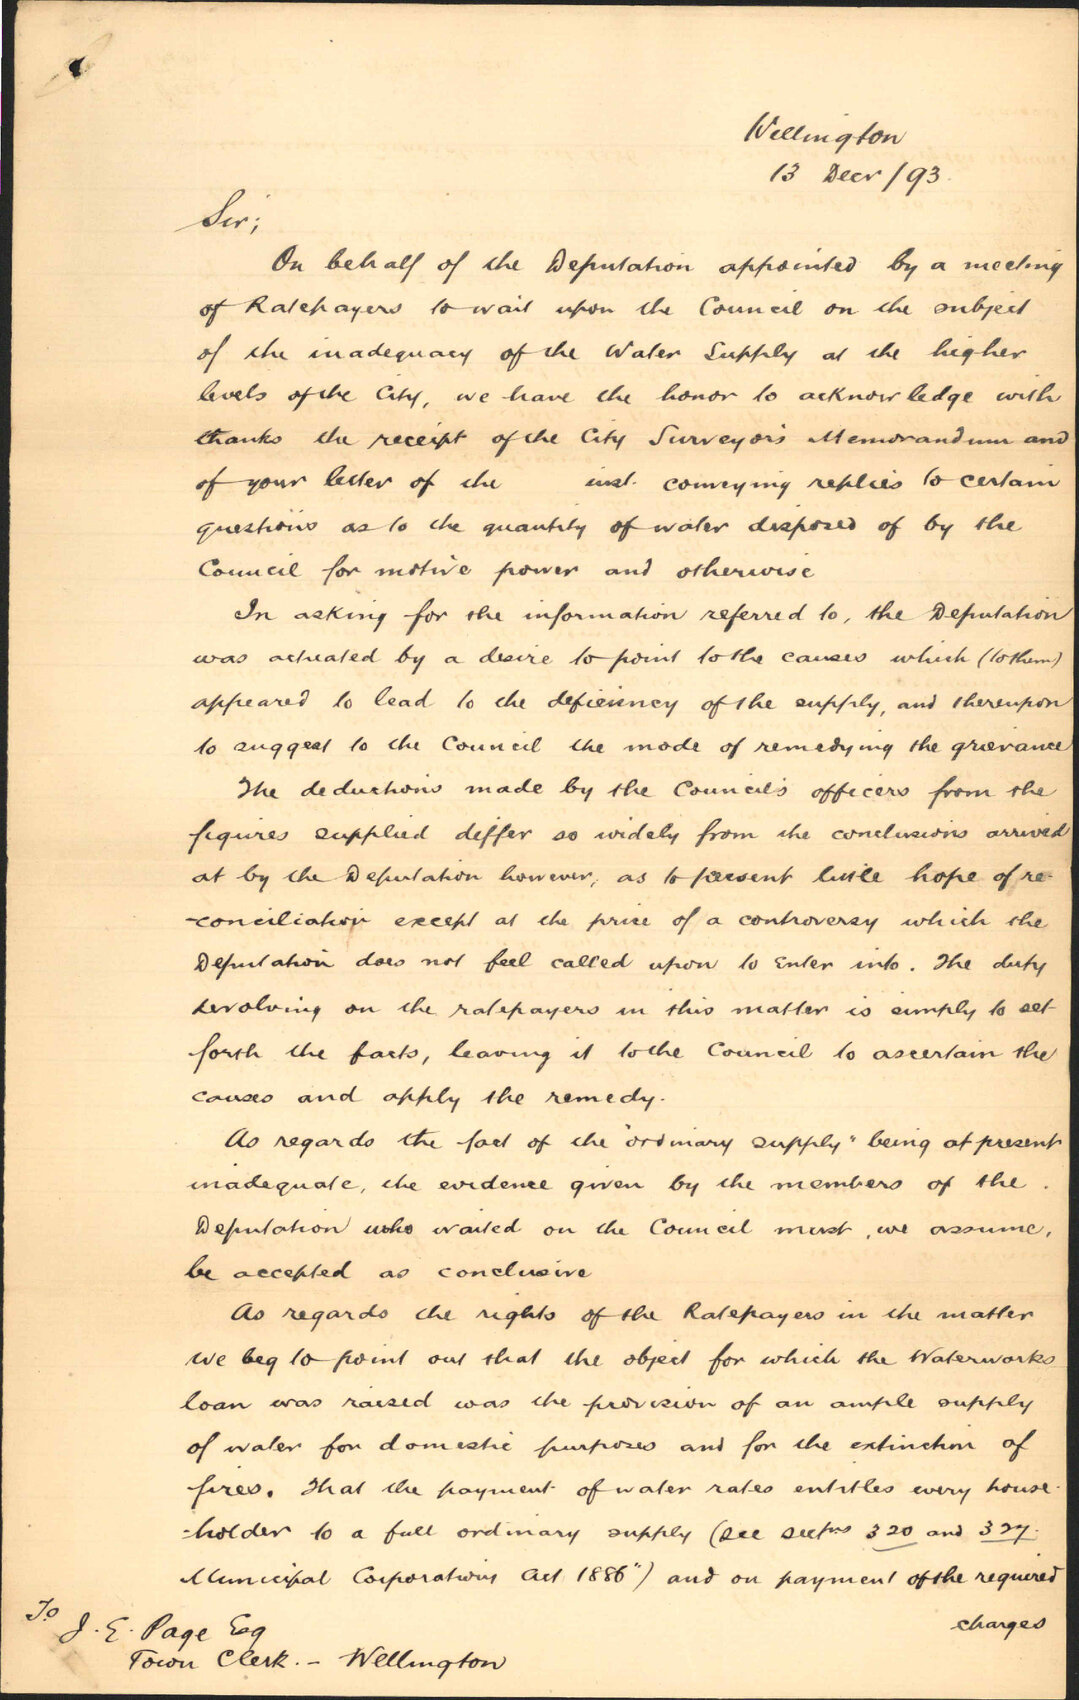 Wellington
13 Decr /93.
Sir;
On behalf of the Deputation appointed by a meeting
of Ratepayers to wait upon the Council on the subject
of the inadequacy of the Water Supply at the higher
levels of the City, we have the honor to acknowledge with
thanks the receipt of the City Surveyor's Memorandum and
of your letter of the inst. conveying replies to certain
questions as to the quantity of water disposed of by the
Council for motive power and otherwise
In asking for the information referred to, the Deputation
was actuated by a desire to point to the causes which (to them)
appeared to lead to the deficiency of the supply, and thereupon
to suggest to the Council the mode of remedying the grievance
The deductions made by the Council's officers from the
figures supplied differ so widely from the conclusions arrived
at by the Deputation however, as to present little hope of re-
-conciliation except at the price of a controversy which the
Deputation does not feel called upon to enter into. The duty
devolving on the ratepayers in this matter is simply to set
forth the facts, leaving it to the Council to ascertain the
causes and apply the remedy.
As regards the fact of the "ordinary supply" being at present
inadequate, the evidence given by the members of the
Deputation who waited on the Council must, we assume,
be accepted as conclusive
As regards the rights of the Ratepayers in the matter
we beg to point out that the object for which the Waterworks
loan was raised was the provision of an ample supply
of water for domestic purposes and for the extinction of
fires. That the payment of water rates entitles every house-
-holder to a full ordinary supply (see sectns 320 and 327.
Municipal Corporations Act 1886") and on payment of the required
charges
To
J. E. Page Esq
Town Clerk. - Wellington